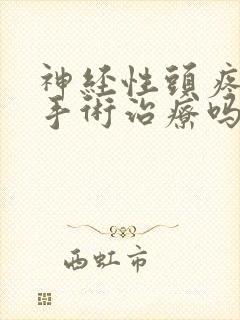 神経性頭疼
手術治療吗
西虹市